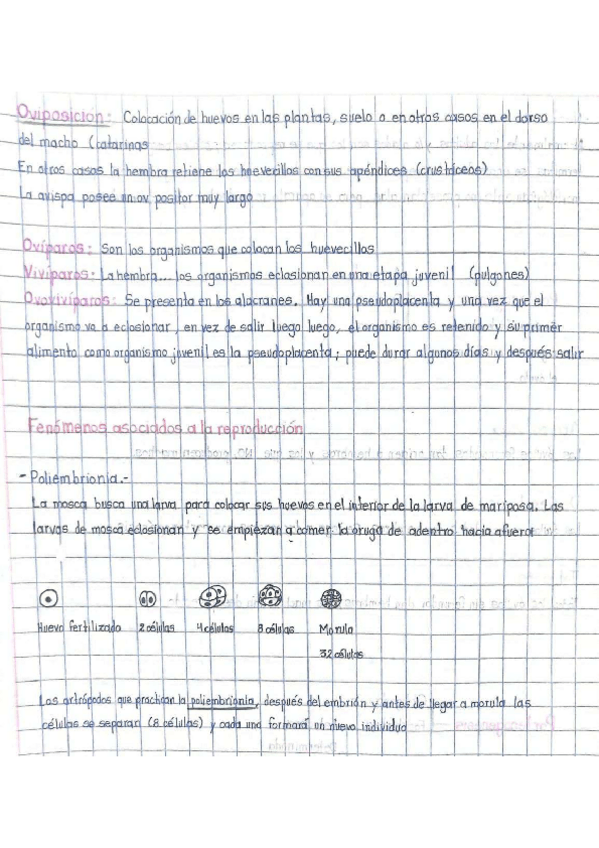 Oviposición: Colocación de huevos en las plantas, suelo o en otros casos en el dorso
del macho (catarinas
En otros casos la hembra retiene los huevecillos con sus apéndices (crustáceos)
La avispa posee un ov. positor muy largo
Ovíparos: Son los organismos que colocan los huevecillos
Vivíparos: La hembra... los organismos eclosionan en una etapa juvenil (pulgones)
Ovovivíparos: Se presenta en los alacranes. Hay una pseudoplacenta y una vez que el
organismo va a eclosionar, en vez de salir luego luego, el organismo es retenido y su primer
alimento como organismo juvenil es la pseudoplacenta; puede durar algunos días y después salir
Fenómenos asociados a la reproducción
- Poliembrionía.-
La mosca busca una larva para colocar sus huevos en el interior de la larva de mariposa. Las
larvas de mosca eclosionan y se empiezan a comer la oruga de adentro hacia afuera
Huevo fertilizado 2 células 4 células 8 células Morula
32 células
Los artrópodos que practican la poliembrionía, después del embrión y antes de llegar a morula las
células se separan (8 células) y cada una formará un nuevo individuo